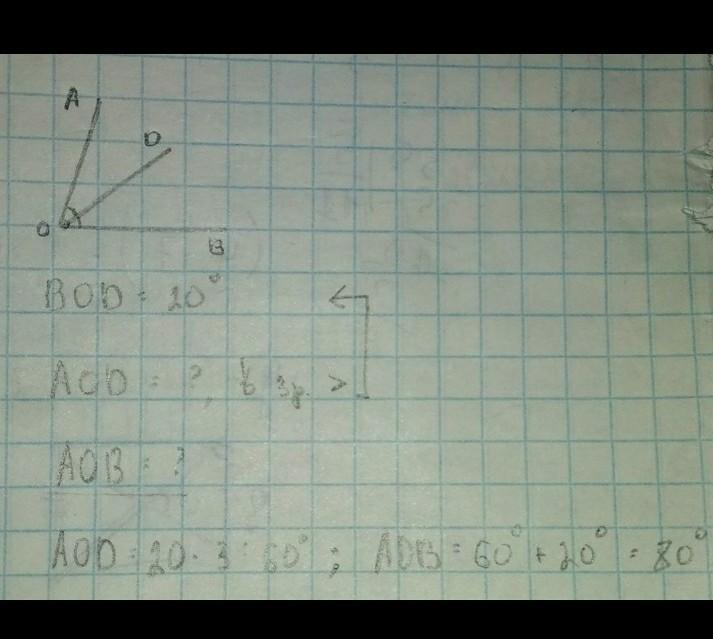 A
D
O
B
BOD = 20°
AOD = ?, в 3р. >
AOB = ?
AOD = 20 · 3 = 60° ; AOB = 60° + 20° = 80°